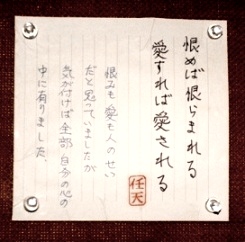 恨めば恨らまれる
愛すれば愛される
任天
恨みも愛も人のせい
だと思っていましたが
気が付けば全部自分の心の
中に有りました、